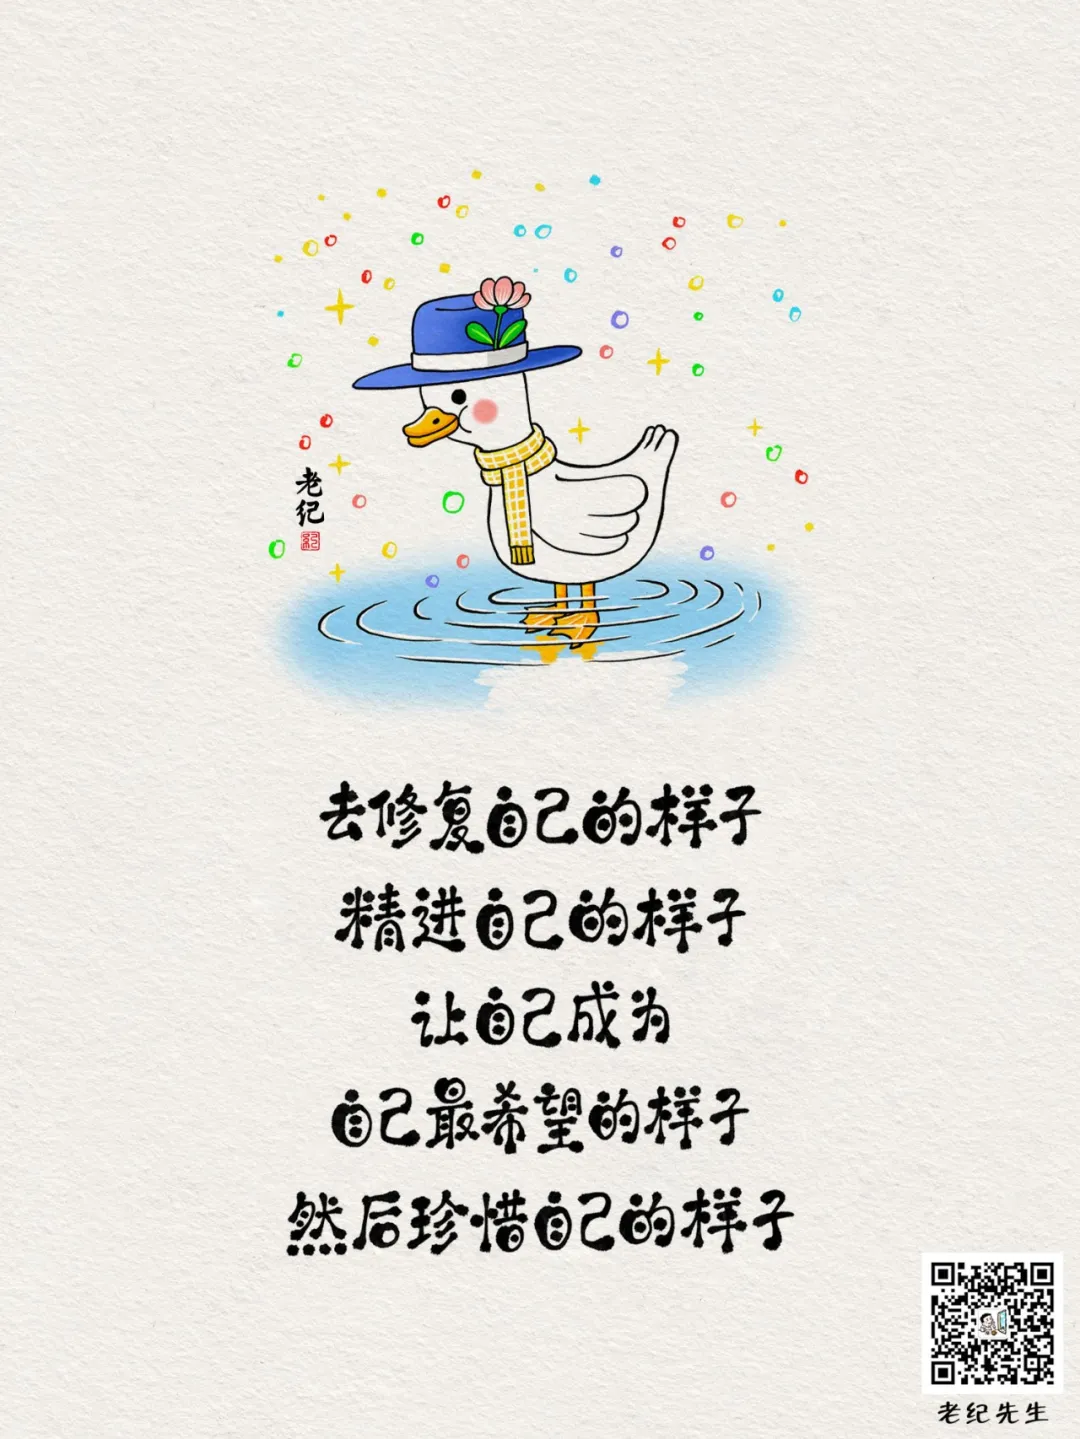 老纪
去修复自己的样子
精进自己的样子
让自己成为
自己最希望的样子
然后珍惜自己的样子
老纪先生